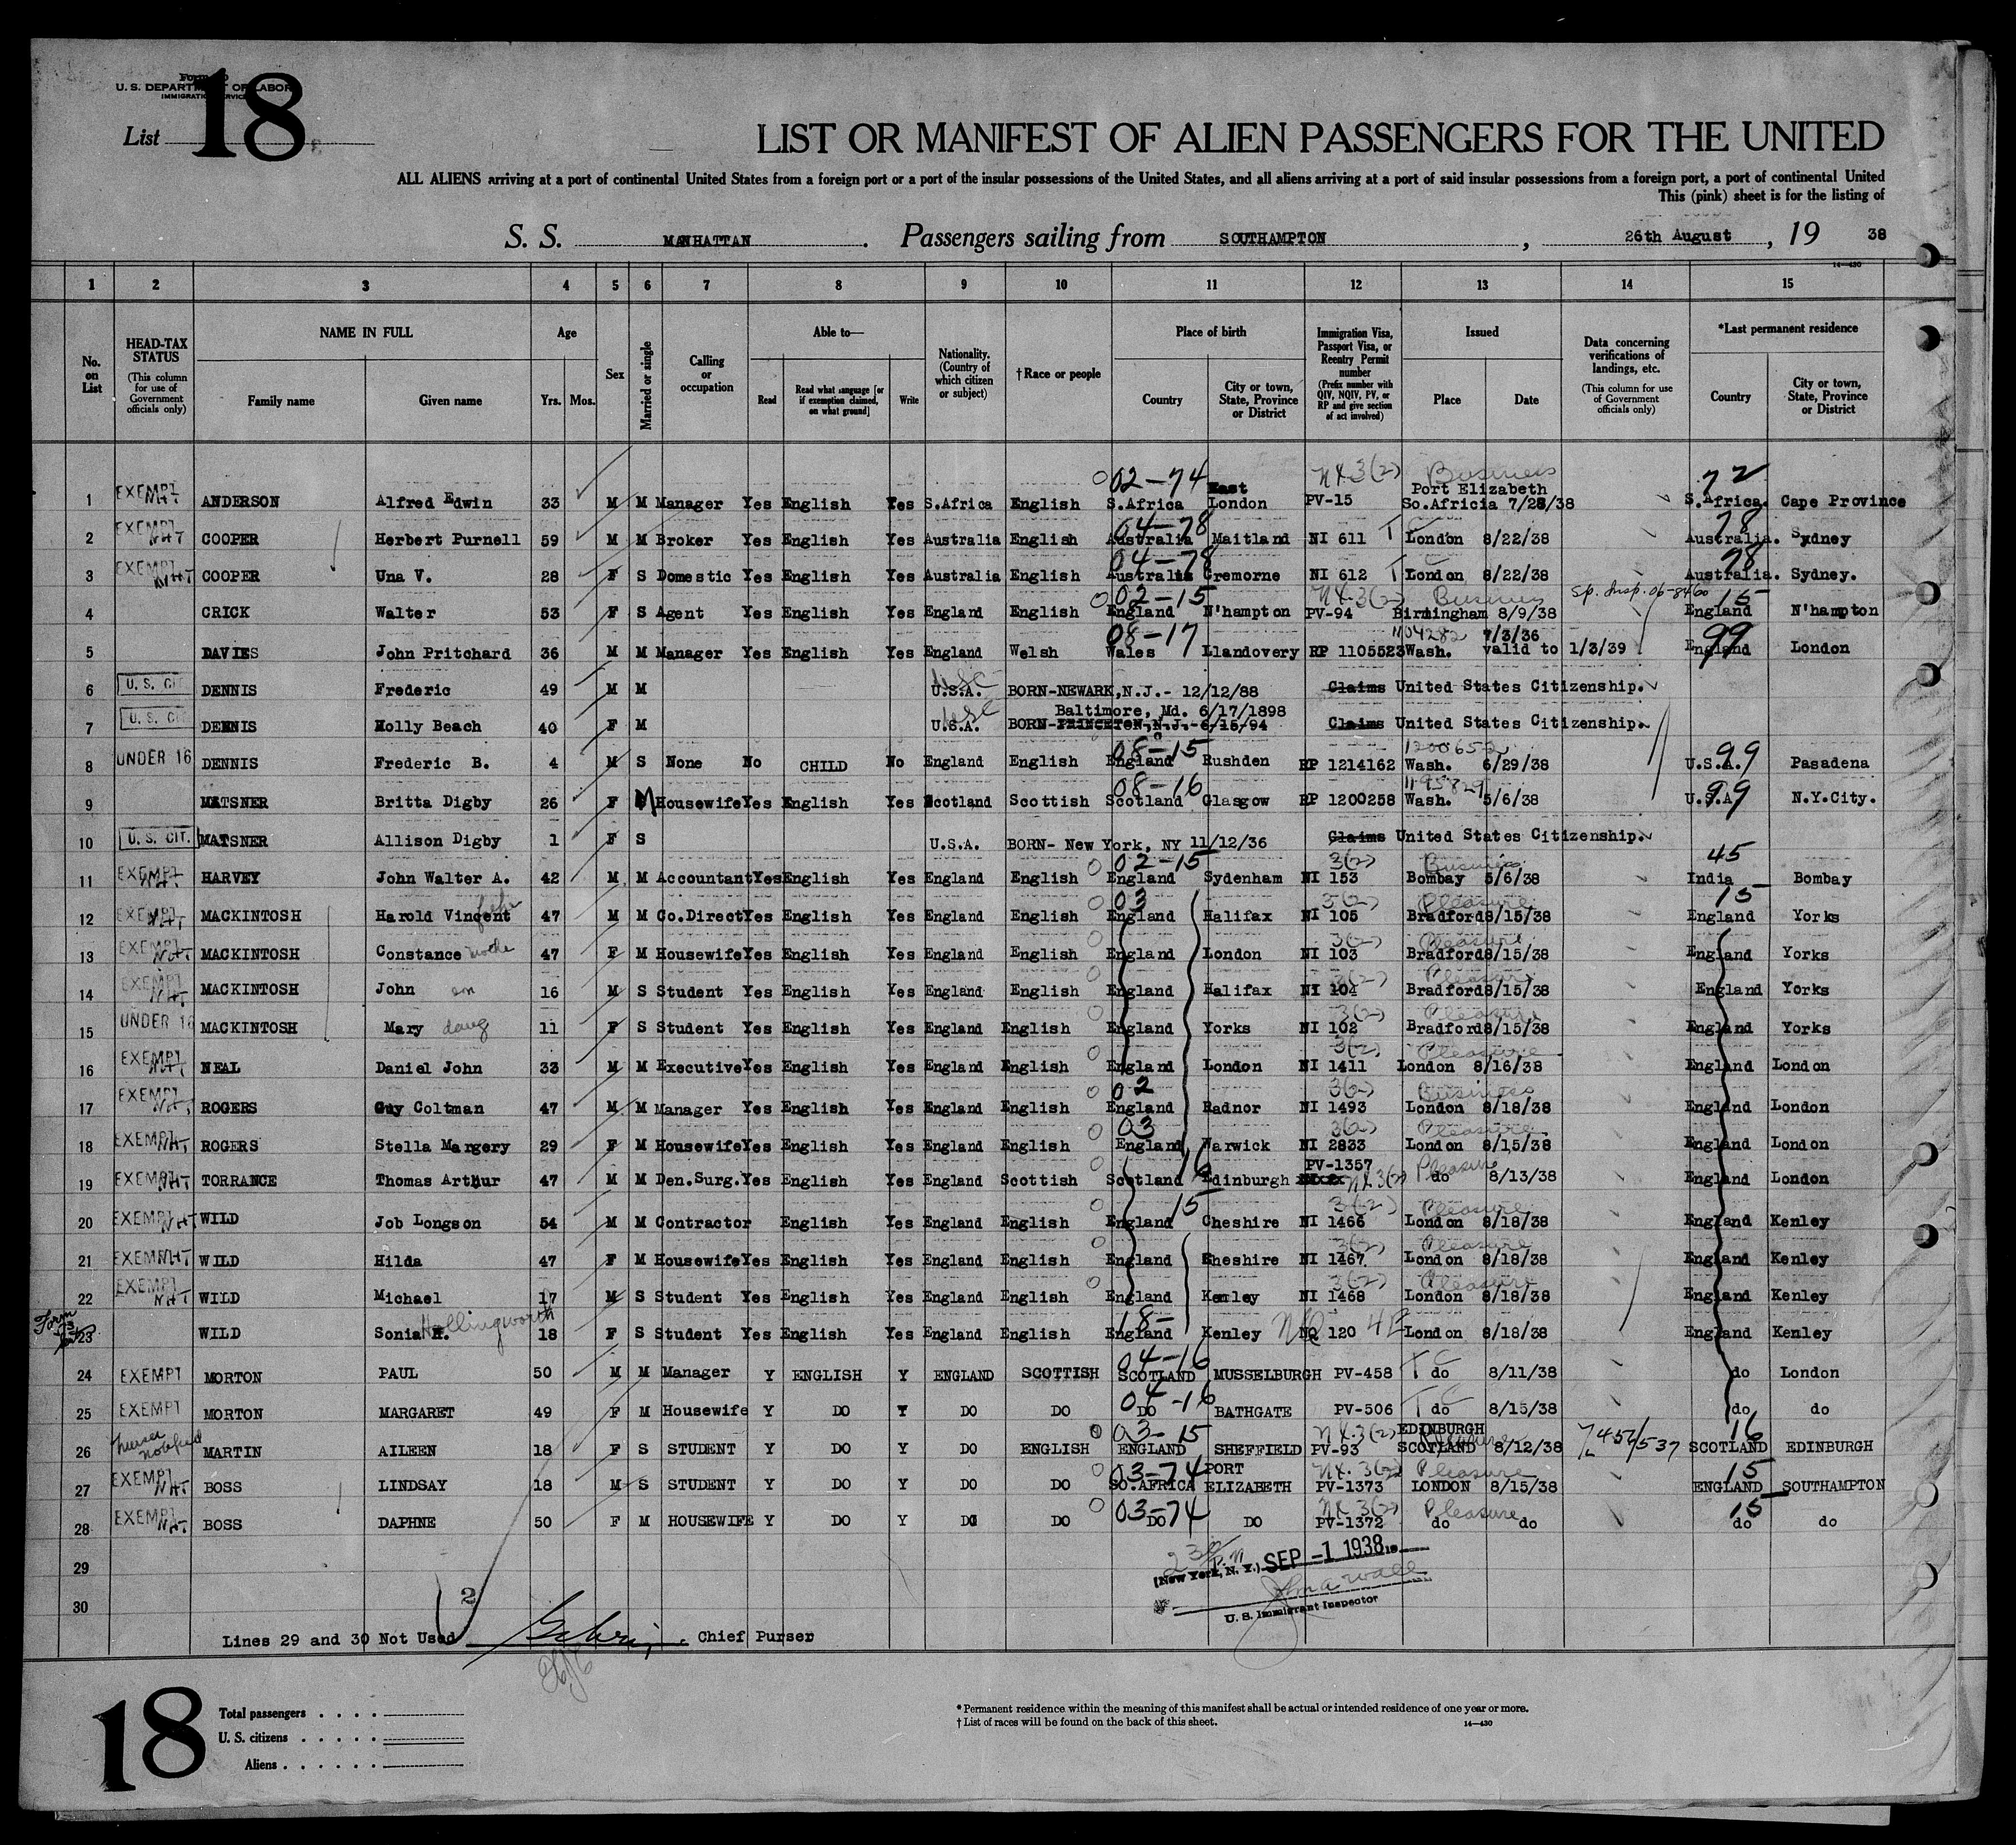 Form
U. S. DEPARTMENT OF LABOR
IMMIGRATION SERVICE
List 18
LIST OR MANIFEST OF ALIEN PASSENGERS FOR THE UNITED
ALL ALIENS arriving at a port of continental United States from a foreign port or a port of the insular possessions of the United States, and all aliens arriving at a port of said insular possessions from a foreign port, a port of continental United
This (pink) sheet is for the listing of
S. S. MANHATTAN . Passengers sailing from SOUTHAMPTON , 26th August , 19 38
14—430
1 2 3 4 5 6 7 8 9 10 11 12 13 14 15
No. on List
HEAD-TAX STATUS (This column for use of Government officials only)
NAME IN FULL Family name Given name
Age Yrs. Mos.
Sex
Married or single
Calling or occupation
Able to— Read Read what language [or if exemption claimed, on what ground] Write
Nationality. (Country of which citizen or subject)
†Race or people
Place of birth Country City or town, State, Province or District
Immigration Visa, Passport Visa, or Reentry Permit number (Prefix number with QIV, NQIV, PV, or RP and give section of act involved)
Issued Place Date
Data concerning verifications of landings, etc. (This column for use of Government officials only)
*Last permanent residence Country City or town, State, Province or District
02-74 East NX 3(2) Business Port Elizabeth 72
1 EXEMPT NHT ANDERSON Alfred Edwin 33 M M Manager Yes English Yes S.Africa English S.Africa London PV-15 So.Africia 7/28/38 S.Africa. Cape Province
04-78 78
2 EXEMPT NHT COOPER Herbert Purnell 59 M M Broker Yes English Yes Australia English Australia Maitland NI 611 T London 8/22/38 Australia. Sydney
04-78 78
3 EXEMPT NHT COOPER Una V. 28 F S Domestic Yes English Yes Australia English Australia Cremorne NI 612 T London 8/22/38 Australia. Sydney.
02-15 NX 3(2) Business Sp. Insp. 06-8460 15
4 CRICK Walter 53 F S Agent Yes English Yes England English England N'hampton PV-94 Birmingham 8/9/38 England N'hampton
08-17 7/3/36 99
5 DAVIES John Pritchard 36 M M Manager Yes English Yes England Welsh Wales Llandovery RP 1105523 Wash. valid to 1/3/39 England London
6 U. S. CIT DENNIS Frederic 49 M M USC U.S.A. BORN-NEWARK,N.J.- 12/12/88 Claims United States Citizenship.
USC Baltimore, Md. 6/17/1898
7 U. S. CIT DENNIS Holly Beach 40 F M U.S.A. BORN-PRINCETON,N.J.-6/15/94 Claims United States Citizenship.
08-15 99
8 UNDER 16 DENNIS Frederic B. 4 M S None No CHILD No England English England Rushden RP 1214162 Wash. 6/29/38 U.S.A. Pasadena
08-16 99
9 MATSNER Britta Digby 26 F M Housewife Yes English Yes Scotland Scottish Scotland Glasgow RP 1200258 Wash. 5/6/38 U.S.A N.Y.City.
10 U. S. CIT. MATSNER Allison Digby 1 F S U.S.A. BORN- New York, NY 11/12/36 Claims United States Citizenship.
02-15 3(2) Business 45
11 EXEMPT NHT HARVEY John Walter A. 42 M M Accountant Yes English Yes England English England Sydenham NI 153 Bombay 5/6/38 India Bombay
03 3(2) Pleasure 15
12 EXEMPT NHT MACKINTOSH Harold Vincent 47 M M Co.Direct Yes English Yes England English England Halifax NI 105 Bradford 8/15/38 England Yorks
3(2) Pleasure
13 EXEMPT NHT MACKINTOSH Constance 47 F M Housewife Yes English Yes England English England London NI 103 Bradford 8/15/38 England Yorks
3(2) Pleasure
14 EXEMPT NHT MACKINTOSH John son 16 M S Student Yes English Yes England English England Halifax NI 104 Bradford 8/15/38 England Yorks
3(2) Pleasure
15 UNDER 16 MACKINTOSH Mary daug 11 F S Student Yes English Yes England English England Yorks NI 102 Bradford 8/15/38 England Yorks
3(2) Pleasure
16 EXEMPT NHT NEAL Daniel John 33 M M Executive Yes English Yes England English England London NI 1411 London 8/16/38 England London
02 3(2) Business
17 EXEMPT NHT ROGERS Guy Coltman 47 M M Manager Yes English Yes England English England Radnor NI 1493 London 8/18/38 England London
03 3(2) Pleasure
18 EXEMPT NHT ROGERS Stella Margery 29 F M Housewife Yes English Yes England English England Warwick NI 2833 London 8/15/38 England London
16 PV-1357 NX 3(2) Pleasure
19 EXEMPT NHT TORRANCE Thomas Arthur 47 M M Den.Surg. Yes English Yes England Scottish Scotland Edinburgh do 8/13/38 England London
15 3(2) Pleasure
20 EXEMPT NHT WILD Job Longson 54 M M Contractor English Yes England English England Cheshire NI 1466 London 8/18/38 England Kenley
3(2) Pleasure
21 EXEMPT NHT WILD Hilda 47 F M Housewife Yes English Yes England English England Cheshire NI 1467 London 8/18/38 England Kenley
3(2) Pleasure
22 EXEMPT NHT WILD Michael 17 M S Student Yes English Yes England English England Kenley NI 1468 London 8/18/38 England Kenley
Form Hollingworth 18-
23 WILD Sonia H. 18 F S Student Yes English Yes England English England Kenley NQ NQ 120 4E London 8/18/38 England Kenley
04-16
24 EXEMPT MORTON PAUL 50 M M Manager Y ENGLISH Y ENGLAND SCOTTISH SCOTLAND MUSSELBURGH PV-458 T do 8/11/38 do London
04-16
25 EXEMPT MORTON MARGARET 49 F M Housewife Y DO Y DO DO DO BATHGATE PV-506 T do 8/15/38 do do
Purser notified 03-15 NX 3(2) EDINBURGH Pleasure 16
26 MARTIN AILEEN 18 F S STUDENT Y DO Y DO ENGLISH ENGLAND SHEFFIELD PV-93 SCOTLAND 8/12/38 SCOTLAND EDINBURGH
03-74 PORT NX. 3(2) Pleasure 15
27 EXEMPT NHT BOSS LINDSAY 18 M S STUDENT Y DO Y DO DO SO.AFRICA ELIZABETH PV-1373 LONDON 8/15/38 ENGLAND SOUTHAMPTON
03-74 NX 3(2) Pleasure 15
28 EXEMPT NHT BOSS DAPHNE 50 F M HOUSEWIFE Y DO Y DO DO DO DO PV-1372 do do do do
29
30
2 30 P.M
(New York, N. Y.) SEP -1 1938 19
John A Wall
U. S. Immigrant Inspector
2
Lines 29 and 30 Not Used Chief Purser
18
Total passengers . . . .
U. S. citizens . . . . .
Aliens . . . . . .
* Permanent residence within the meaning of this manifest shall be actual or intended residence of one year or more.
† List of races will be found on the back of this sheet.
14—430